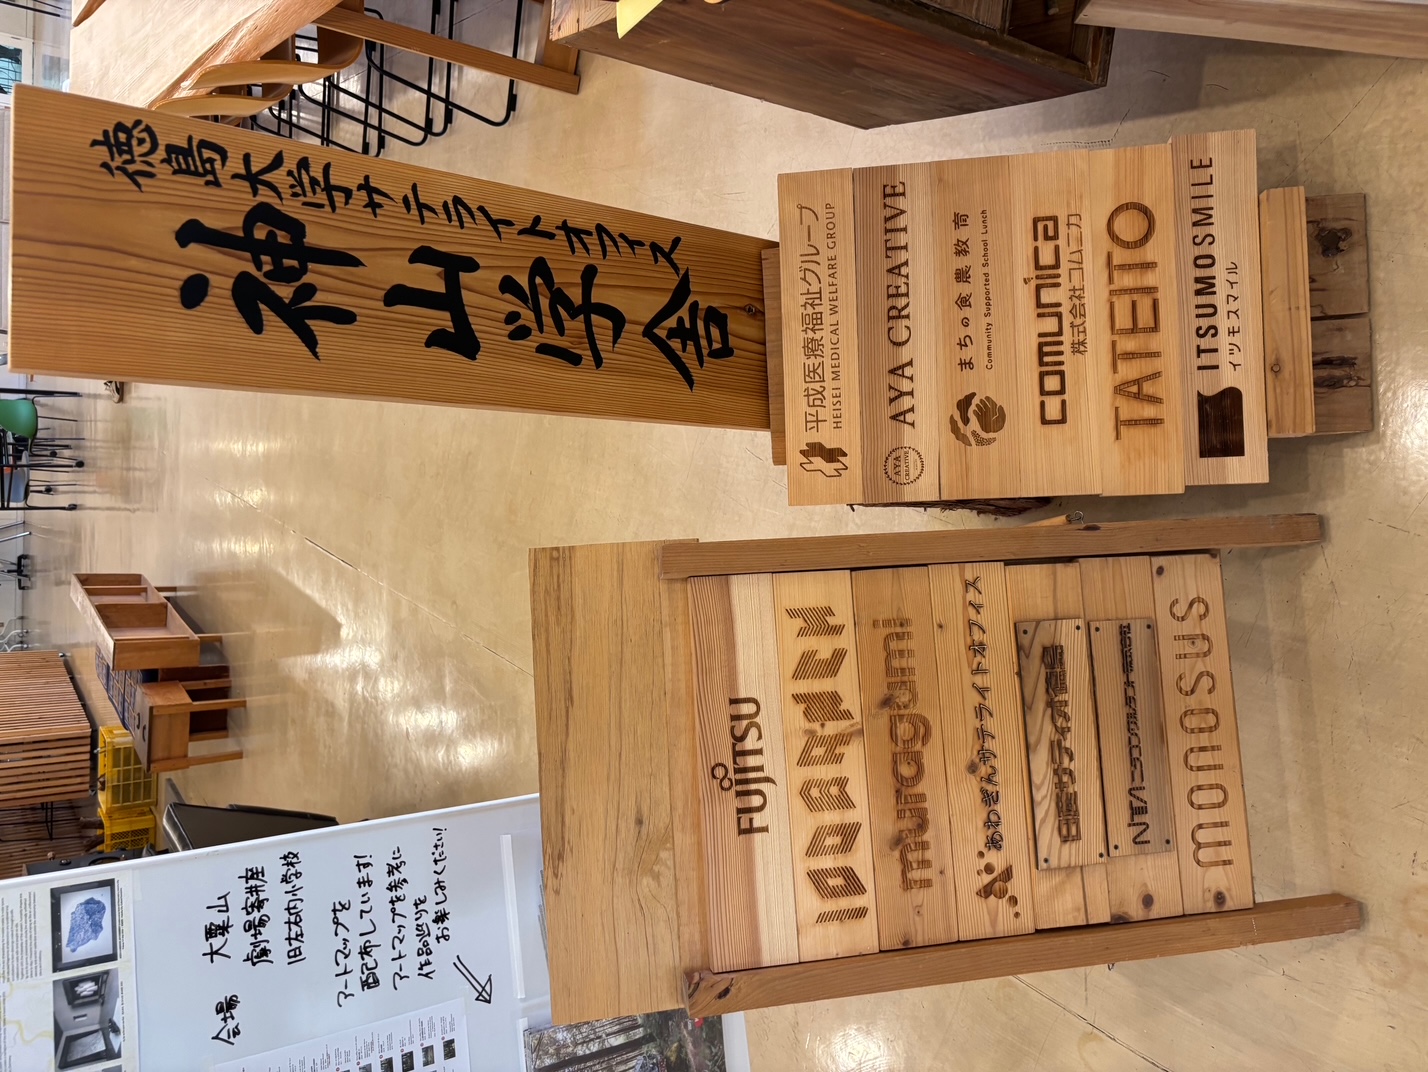 徳島大学サテライトオフィス
神山学舎
平成医療福祉グループ
HEISEI MEDICAL WELFARE GROUP
AYA CREATIVE
AYA CREATIVE
まちの食農教育
Community Supported School Lunch
comunica
株式会社コムニカ
TATEITO
ITSUMOSMILE
イツモスマイル
FUJITSU
muragumi
あわぎんサテライトオフィス
monosus
会場
大粟山
劇場寄井座
旧左右内小学校
アートマップを
配布しています!
アートマップを参考に
作品巡りを
お楽しみください!